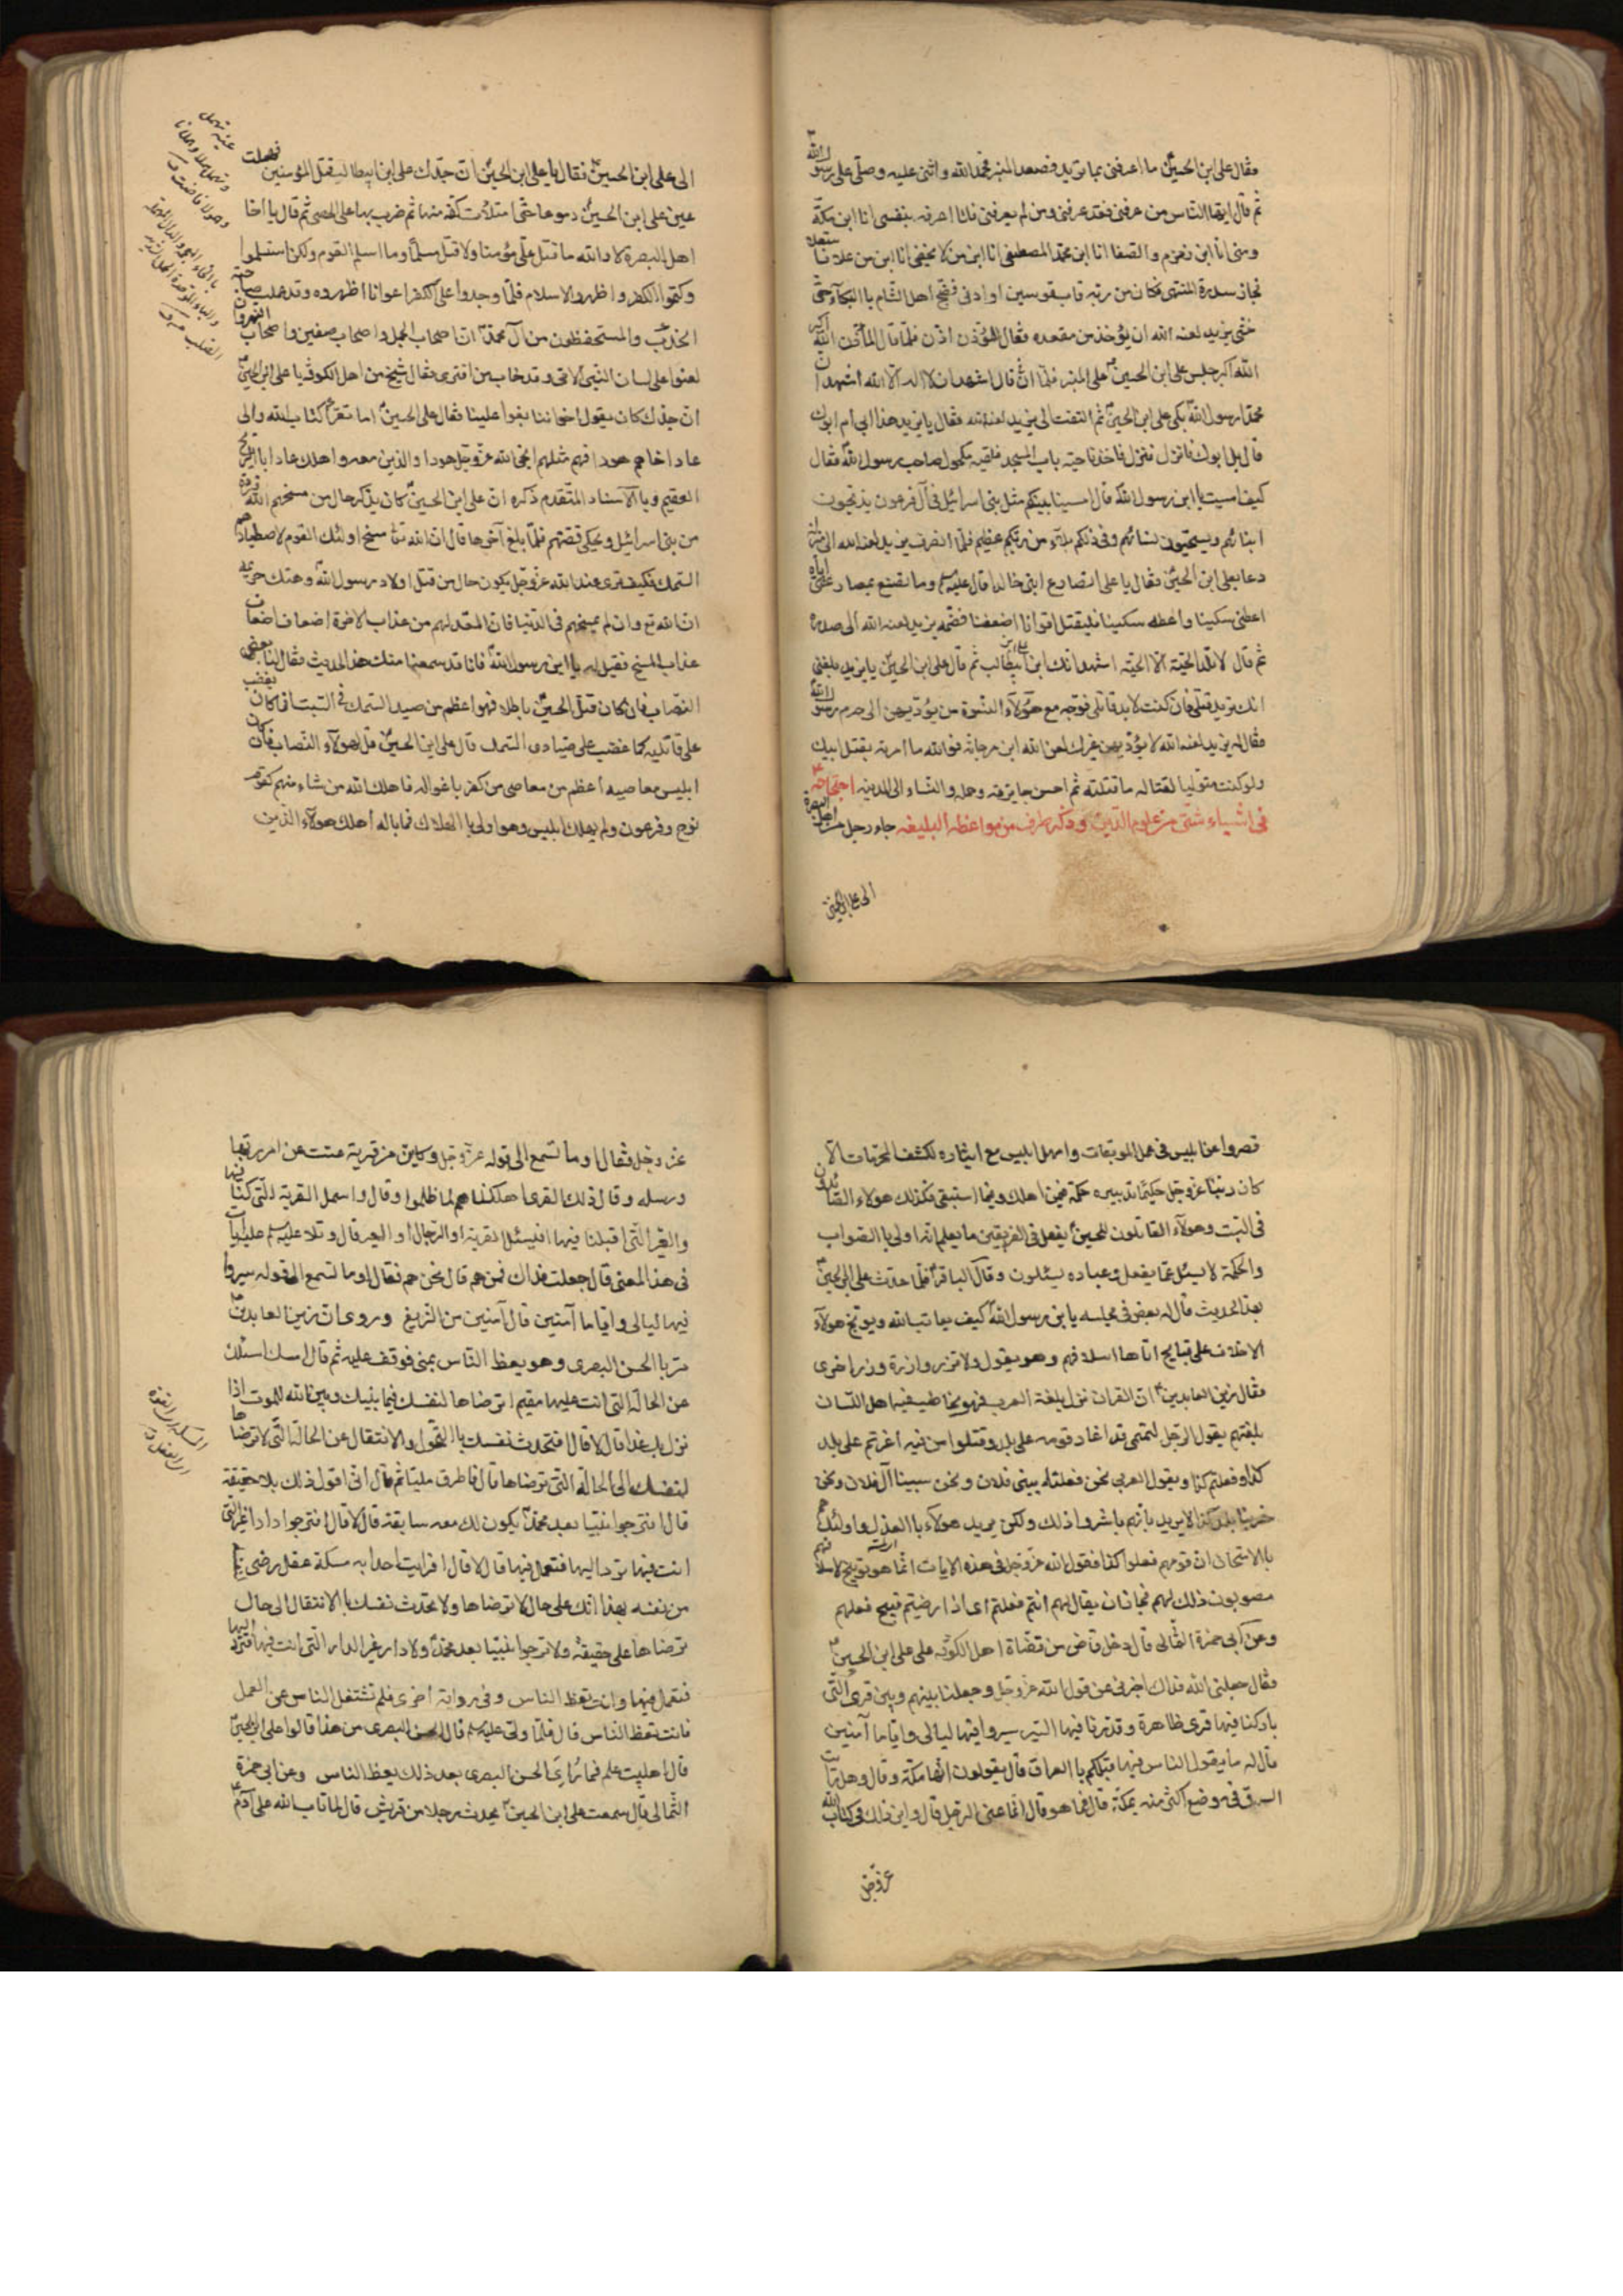 فقال على ابن الحسين ما اعرفنى بما تريد فصعد المنبر فحمد الله واثنى عليه وصلى على رسول الله
ثم قال ايها الناس من عرفنى فقد عرفنى ومن لم يعرفنى فانا اعرفه بنفسى انا ابن مكة
ومنى انا ابن زمزم والصفا انا ابن محمد المصطفى انا ابن من لا يخفى انا ابن من علا فاستعلا
فجاز سدرة المنتهى فكان من ربه قاب قوسين او ادنى فضج اهل الشام باالبكاء حتى
خشى يزيد لعنه الله ان يؤخذ من مقعده فقال للمؤذن اذن فلما قال المؤذن الله اكبر
الله اكبر جلس على ابن الحسين على المنبر فلما ان قال اشهد ان لا اله الا الله اشهد ان
محمدا رسول الله بكى على ابن الحسين ثم التفت الى يزيد لعنه الله فقال يا يزيد هذا ابى ام ابوك
قال بل ابوك فانزل فنزل فاخذ ناحية باب المسجد فلقيه مكحول صاحب رسول الله فقال
كيف امسيت يا ابن رسول الله قال امسينا بينكم مثل بنى اسرائيل فى آل فرعون يذبحون
ابنائهم ويستحيون نسائهم وفى ذلكم بلاء من ربكم عظيم فلما انصرف يزيد لعنه الله الى منزله
دعا بعلى ابن الحسين فقال يا على اتصارع ابنى خالدا قال عليه السلام وما تصنع بمصارعتى اياه
اعطنى سكينا واعطه سكينا فليقتل اقوانا اضعفنا فضمه يزيد لعنه الله الى صدره
ثم قال لا تلد الحية الا الحية اشهد انك ابن على ابن ابيطالب ثم قال على ابن الحسين يا يزيد بلغنى
انك تريد قتلى فان كنت لا بد قاتلى فوجه مع هؤلاء النسوة من يؤديهن الى حرم رسول الله
فقال له يزيد لعنه الله لا يؤديهن غيرك لعن الله ابن مرجانة فوالله ما امرته بقتل ابيك
ولو كنت متوليا لقتاله ما قتلته ثم احسن جايزته وحمله والنساء الى المدينه احتجاجه
فى اشياء شتى من علوم الدين وذكر طرف من مواعظه البليغه جاء رجل من اهل البصرة
الى على ابن الحسين
الى على ابن الحسين فقال يا على ابن الحسين ان جدك على ابن ابيطالب قتل المؤمنين فهملت
عين على ابن الحسين دموعا حتى امتلأت كفه منها ثم ضرب بها على الحصى ثم قال يا اخا
اهل البصرة لا والله ما قتل على مؤمنا ولا قتل مسلما وما اسلم القوم ولكن استسلموا
وكتموا الكفر واظهروا الاسلام فلما وجدوا على الكفر اعوانا اظهروه وقد علمت صاحبة
الخدب والمستحفظون من آل محمد ان اصحاب الجمل واصحاب صفين واصحاب النهروان
لعنوا على لسان النبى الامى وقد خاب من افترى فقال شيخ من اهل الكوفه يا على ابن الحسين
ان جدك كان يقول اخواننا بغوا علينا فقال على الحسين اما تقرأ كتاب الله والى
عاد اخاهم هودا فهم مثلهم انجى الله عز وجل هودا والذين معه واهلك عادا باالريح
العقيم وباالاسناد المتقدم ذكره ان على ابن الحسين كان يذكر حال من مسخهم الله قردة
من بنى اسرائيل ويحكى قصتهم فلما بلغ آخرها قال ان الله تعا مسخ اولئك القوم لاصطيادهم
السمك فكيف ترى عند الله عز وجل يكون حال من قتل اولاد رسول الله وهتك حريمه
ان الله تع وان لم يمسخهم فى الدنيا فان المعد لهم من عذاب الاخرة اضعاف اضعاف
عذاب المسخ فقيل له يا ابن رسول الله فانا قد سمعنا منك هذا الحديث فقال لنا بعض
النصاب فان كان قتل الحسين باطلا فهو اعظم من صيد السمك فى السبت افما كان يغضب
على قاتليه كما غضب على صيادى السمك قال على ابن الحسين قل لهؤلاء النصاب فان كان
ابليس معاصيه اعظم من معاصى من كفر باغوائه فاهلك الله من شاء منهم كقوم
نوح وفرعون ولم يهلك ابليس وهو اولى باالهلاك فما باله اهلك هؤلاء الذين
قصروا عن ابليس فى عمل الموبقات وامهل ابليس مع ايثاره لكشف المحرمات الا
كان ربنا عز وجل حكيما تدبيره حكمة فيمن اهلك وفيما استبقى فكذلك هولاء الصائدون
فى السبت وهولاء القاتلون للحسين يفعل فى الفريقين ما يعلم انه اولى باالصواب
والحكمة لا يسئل عما يفعل وعباده يسئلون وقال الباقر فلما حدث على ابن الحسين
بهذا الحديث قال له بعض فى مجلسه يا ابن رسول الله كيف يعاتب الله ويوبخ هولاء
الاخلاف على قبايح اتاها اسلافهم وهو يقول ولا تزر وازرة وزر اخرى
فقال زين العابدين ان القران نزل بلغة العرب فهو يخاطب فيه اهل اللسان
بلغتهم يقول الرجل لتميمى قد اغار قومه على بلد وقتلوا من فيه اغرتم على بلد
كذا وفعلتم كذا ويقول العربى نحن فعلنا ببنى فلان ونحن سبينا آل فلان ونحن
خربنا بلد كذا لا يريد بانهم باشروا ذلك ولكن يريد هولاء باالعذل واولئك
باالامتحان ان قومهم فعلوا كذا فقول الله عز وجل فى هذه الايات انما هو توبيخ لاسلافهم
مصوبون ذلك لهم فجاز ان يقال لهم انتم فعلتم اى اذا رضيتم قبيح فعلهم
وعن ابى حمزة الثمالى قال دخل قاض من قضاة اهل الكوفه على على ابن الحسين
فقال جعلنى الله فداك اخبرنى عن قول الله عز وجل وجعلنا بينهم وبين قرى التى
باركنا فيها قرى ظاهرة وقدرنا فيها السير سيروا فيها ليالى واياما آمنين
قال له ما يقول الناس فيها قبلكم باالعراق قال يقولون انها مكة وقال وهل رايت
السرق فى موضع اكثر منه بمكة قال فما هو قال انما عنى الرجل قال واين ذلك فى كتاب الله
عز وجل
عز وجل فقال اوما تسمع الى قوله عز وجل وكاين من قرية عتت عن امر ربها
ورسله وقال وتلك القرى اهلكناهم لما ظلموا وقال واسئل القرية التى كنا فيها
والعير التى اقبلنا فيها افيسئل القرية او الرجال او العير قال وتلا عليه السلم عليه ايات
فى هذا المعنى قال جعلت فداك فمن هم قال نحن هم فقال اوما تسمع الى قوله سيروا
فيها ليالى واياما آمنين قال آمنين من الزيغ وروى ان زين العابدين
مر باالحسن البصرى وهو يعظ الناس بمنى فوقف عليه ثم قال امسك اسئلك
عن الحالة التى انت عليها مقيم اترضاها لنفسك فيما بينك وبين الله للموت اذا
نزل بك غدا قال لا قال افتحدث نفسك باالتحول والانتقال عن الحالة التى لا ترضاها
لنفسك الى الحالة التى ترضاها قال فاطرق مليا ثم قال انى اقول ذلك بلا حقيقة
قال افترجوا نبيا بعد محمد يكون لك معه سابقة قال لا قال افترجوا دارا غير التى
انت فيها ترد اليها فتعمل فيها قال لا قال افرايت احدا به مسكة عقل رضى
من نفسه بهذا انك على حال لا ترضاها ولا تحدث نفسك باالانتقال الى حال
ترضاها على حقيقة ولا ترجوا نبيا بعد محمد ولا دار غير الدار التى انت فيها فترد اليها
فتعمل فيها وانت تعظ الناس وفى رواية اخرى فلم تشتغل الناس عن العمل
فانت تعظ الناس قال فلما ولى عليه السلم قال الحسن البصرى من هذا قالوا على ابن الحسين
قال اهل بيت علم فما رؤى الحسن البصرى بعد ذلك يعظ الناس وعن ابى حمزة
الثمالى قال سمعت على ابن الحسين يحدث رجلا من قريش قال لما تاب الله على آدم